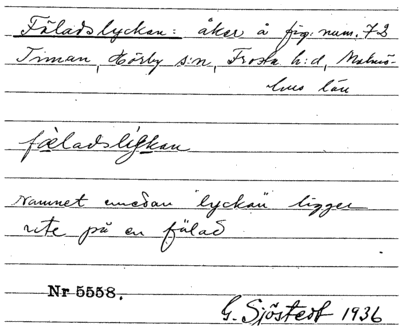 Fäladslyckan: åker å fig. num. 72
Timan, Hörby s:n, Frosta h:d, Malmö-
hus län
fæladslykan
Namnet emedan "lyckan" ligger
ute på en fälad
Nr 5558.
G. Sjöstedt 1936